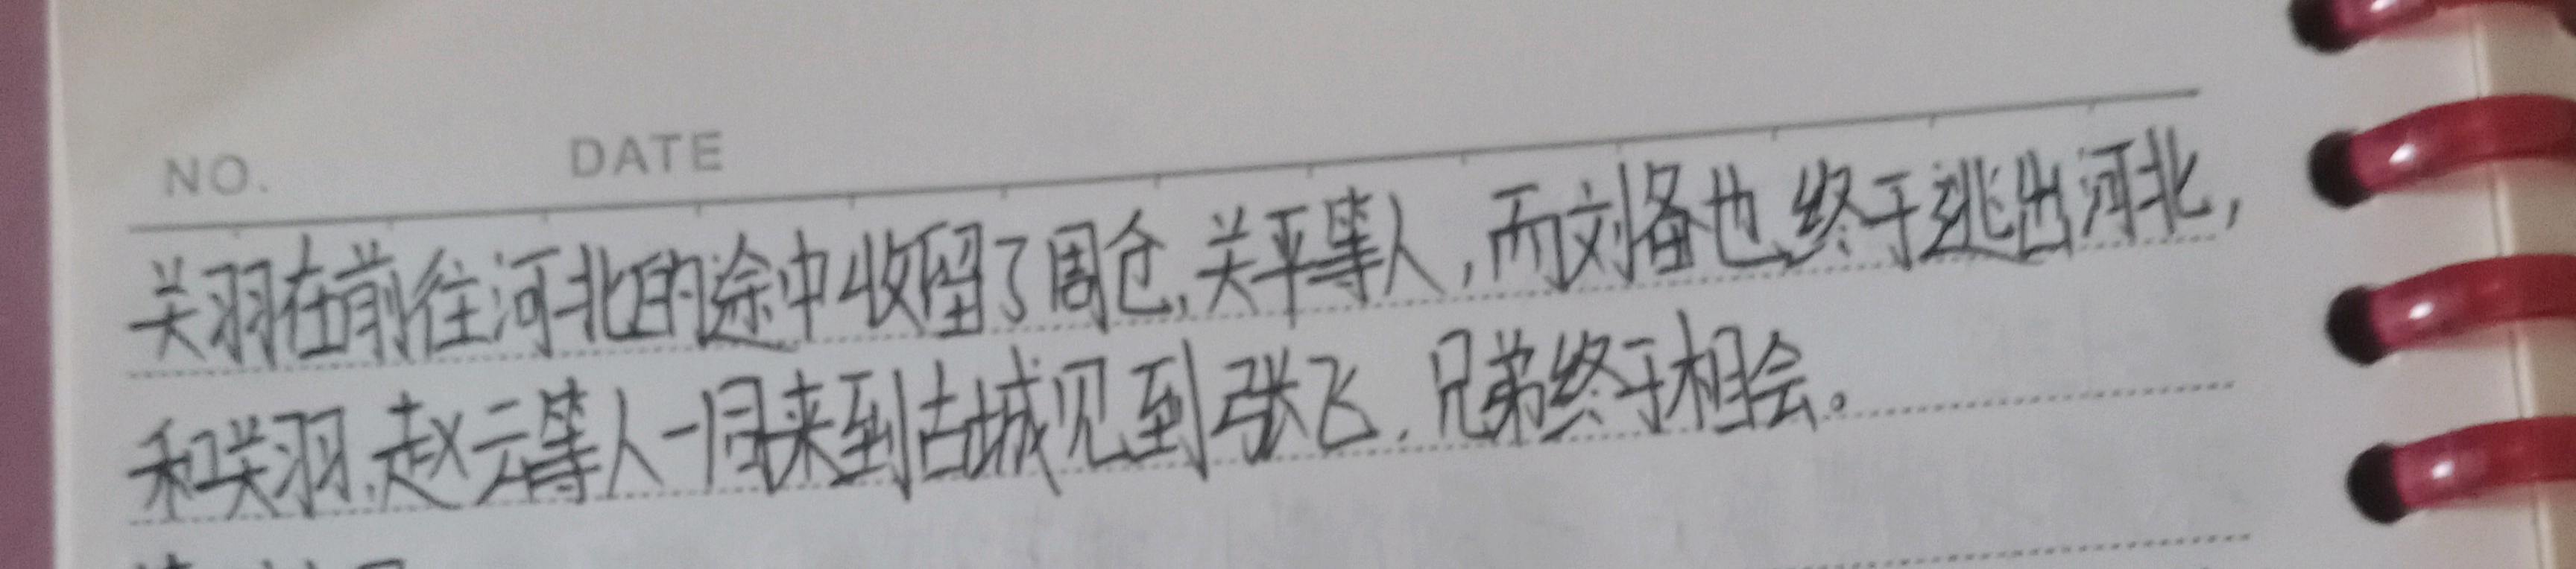 NO. DATE
关羽在前往河北的途中收留了周仓、关平等人,而刘备也终于逃出河北,
和关羽、赵云等人一同来到古城见到张飞,兄弟终于相会。